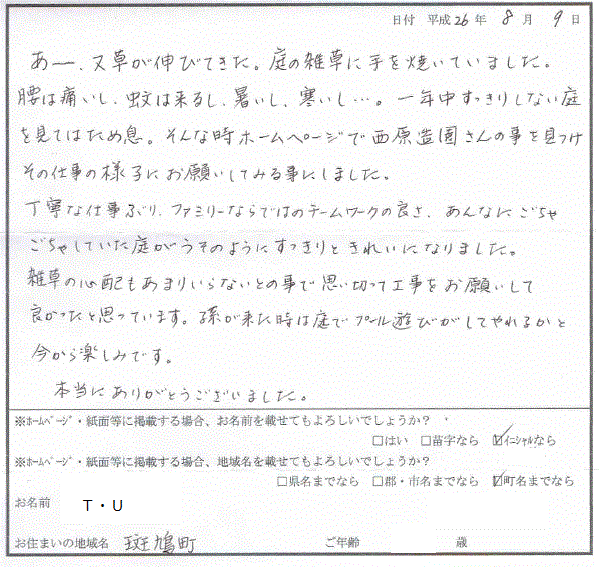 日付 平成26年 8月 9日
あー、又草が伸びてきた。庭の雑草に手を焼いていました。
腰は痛いし、蚊は来るし、暑いし、寒いし…。一年中すっきりしない庭
を見てはため息。そんな時ホームページで西原造園さんの事を見つけ
その仕事の様子にお願いしてみる事にしました。
丁寧な仕事ぶり、ファミリーならではのチームワークの良さ、あんなにごちゃ
ごちゃしていた庭がうそのようにすっきりときれいになりました。
雑草の心配もあまりいらないとの事で思い切って工事をお願いして
良かったと思っています。孫が来た時は庭でプール遊びがしてやれるかと
今から楽しみです。
本当にありがとうございました。
※ﾎｰﾑﾍﾟｰｼﾞ・紙面等に掲載する場合、お名前を載せてもよろしいでしょうか？
□はい □苗字なら ☑ｲﾆｼｬﾙなら
※ﾎｰﾑﾍﾟｰｼﾞ・紙面等に掲載する場合、地域名を載せてもよろしいでしょうか？
□県名までなら □郡・市名までなら ☑町名までなら
お名前 T・U
お住まいの地域名 斑鳩町 ご年齢 歳